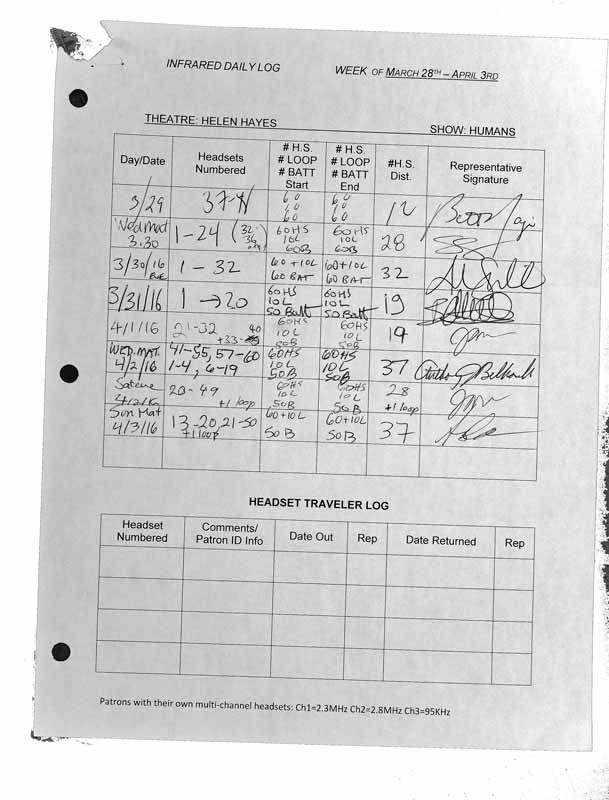 INFRARED DAILY LOG WEEK OF MARCH 28TH – APRIL 3RD
THEATRE: HELEN HAYES SHOW: HUMANS
Day/Date
Headsets
Numbered
# H.S.
# LOOP
# BATT
Start
# H.S.
# LOOP
# BATT
End
#H.S.
Dist.
Representative
Signature
3/29
60
60
60
60
60
60
12
Wed mat
3.30
1-24
60HS
10L
60B
60HS
10L
60B
28
3/30/16
Eve
1 - 32
60+10L
60 BAT
60+10L
60 BAT
32
3/31/16
1 → 20
60HS
10L
50 Batt
60HS
10L
50 Batt
19
4/1/16
21-32
60HS
10L
50B
60HS
10L
50B
19
WED. MAT.
4/2/16
41-55, 57-60
1-4, 6-19
60HS
10L
50B
60HS
10L
50B
37
4/2/16
20-49
+1 loop
60HS
10L
50B
60HS
10L
50B
28
+1 loop
Sun Mat
4/3/16
13-20, 21-50
+1 loop
60+10L
50B
60+10L
50B
37
HEADSET TRAVELER LOG
Headset
Numbered
Comments/
Patron ID Info
Date Out
Rep
Date Returned
Rep
Patrons with their own multi-channel headsets: Ch1=2.3MHz Ch2=2.8MHz Ch3=95KHz